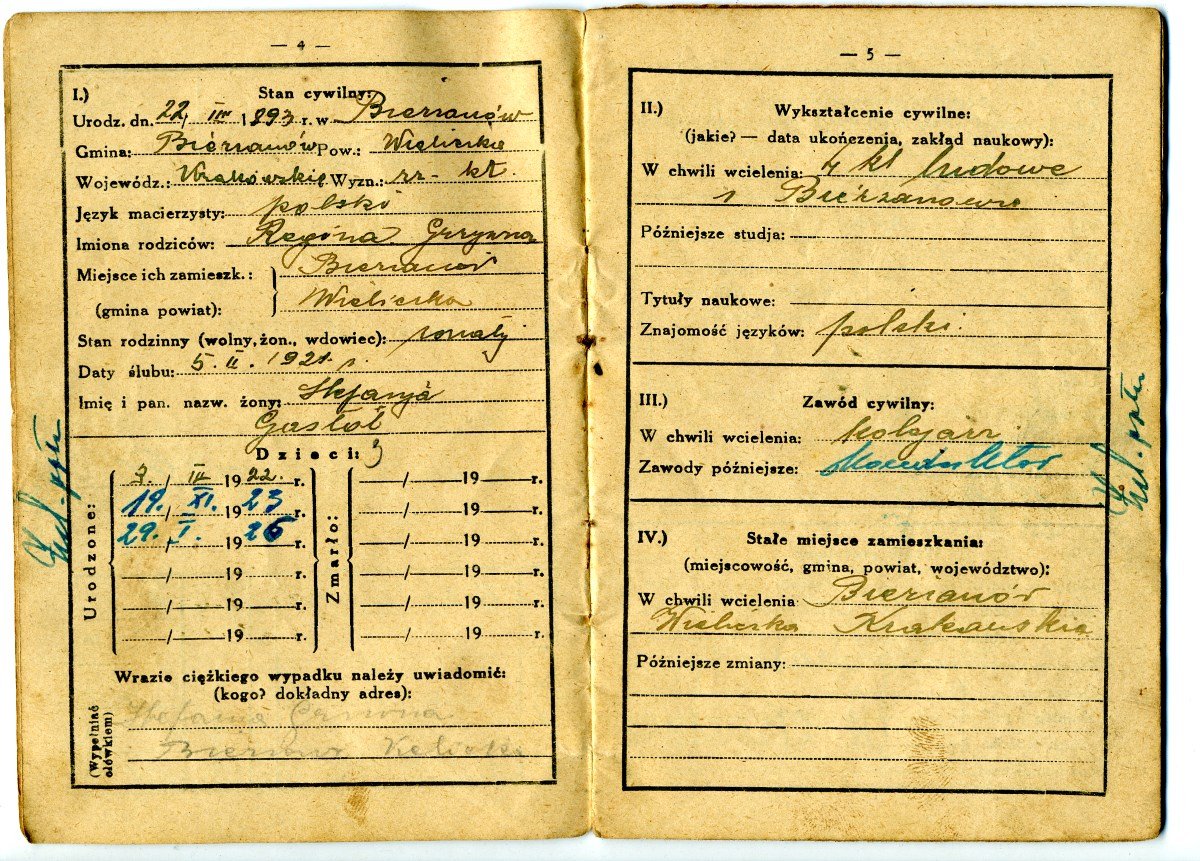 — 4 —
I.) Stan cywilny:
Urodz. dn. 22/ III 1893 r. w Bierzanów
Gmina: Bierzanów Pow.: Wieliczka
Wojewódz.: Krakowskie Wyzn.: rz- kt.
Język macierzysty: polski
Imiona rodziców: Regina
Miejsce ich zamieszk.: Bierzanów
(gmina powiat): Wieliczka
Stan rodzinny (wolny, żon., wdowiec): żonaty
Daty ślubu: 5. II. 1921 r.
Imię i pan. nazw. żony: Stefanja
Gastoł
Dzieci: 3
Urodzone:
7. / III 19 22. r.
19. / XI. 19 23 r.
29. / I. 19 26 r.
— / — 19 — r.
— / — 19 — r.
— / — 19 — r.
Zmarło:
— / — 19 — r.
— / — 19 — r.
— / — 19 — r.
— / — 19 — r.
— / — 19 — r.
— / — 19 — r.
Wrazie ciężkiego wypadku należy uwiadomić:
(kogo? dokładny adres):
(Wypełniać ołówkiem)
Stefania
— 5 —
II.) Wykształcenie cywilne:
(jakie? — data ukończenia, zakład naukowy):
W chwili wcielenia: 4 kl ludowe
Bierzanowie
Późniejsze studja:
Tytuły naukowe:
Znajomość języków: polski.
III.) Zawód cywilny:
W chwili wcielenia: Kolejarz
Zawody późniejsze: Konduktor
IV.) Stałe miejsce zamieszkania:
(miejscowość, gmina, powiat, województwo):
W chwili wcielenia Bierzanów
Wieliczka Krakowskie
Późniejsze zmiany: